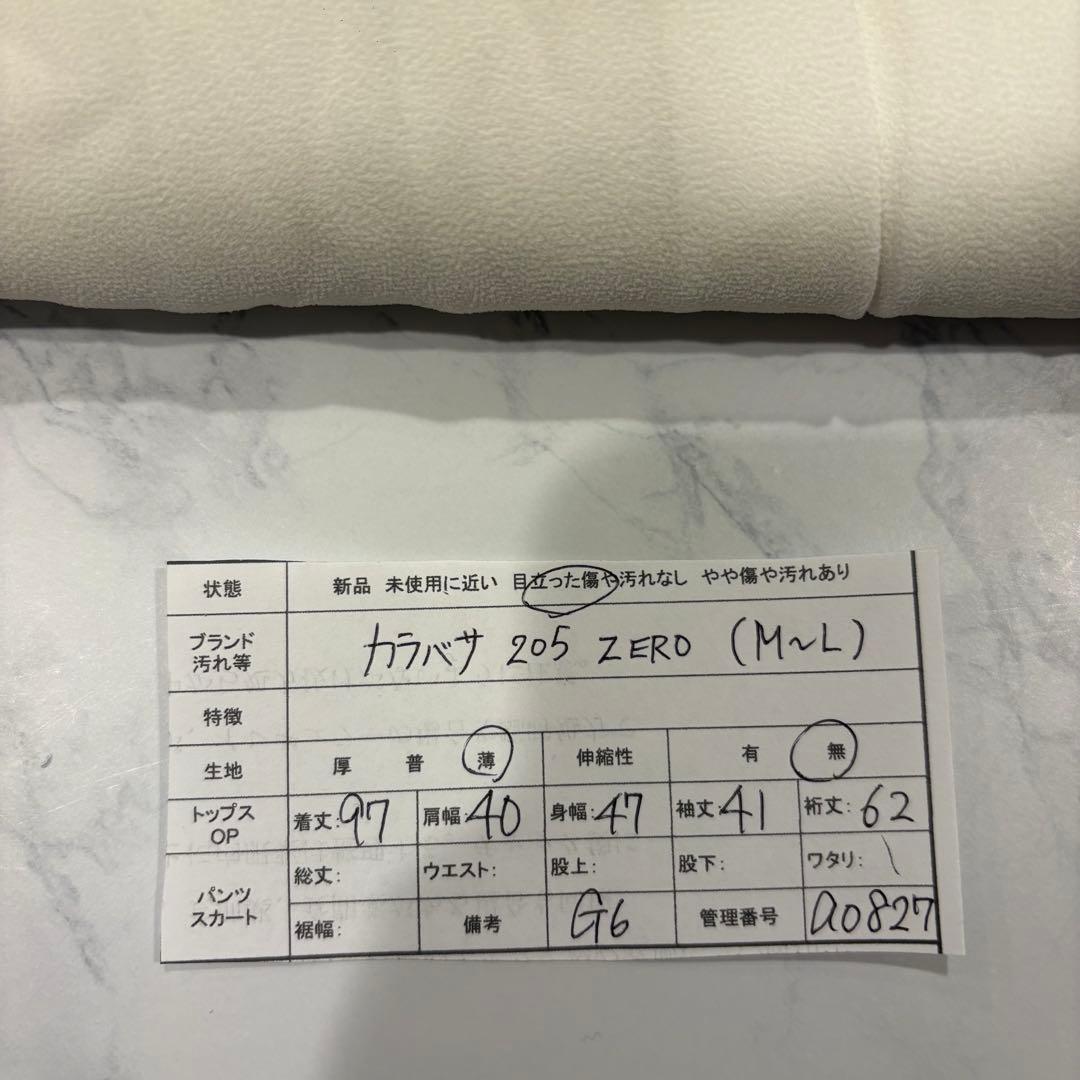 状態 新品 未使用に近い 目立った傷や汚れなし やや傷や汚れあり
ブランド
汚れ等 カラバサ 205 ZERO (M~L)
特徴
生地 厚 普 薄 伸縮性 有 無
トップス
OP 着丈:97 肩幅:40 身幅:47 袖丈:41 裄丈:62
パンツ
スカート 総丈: ウエスト: 股上: 股下: ワタリ:
裾幅: 備考 G6 管理番号 a0827